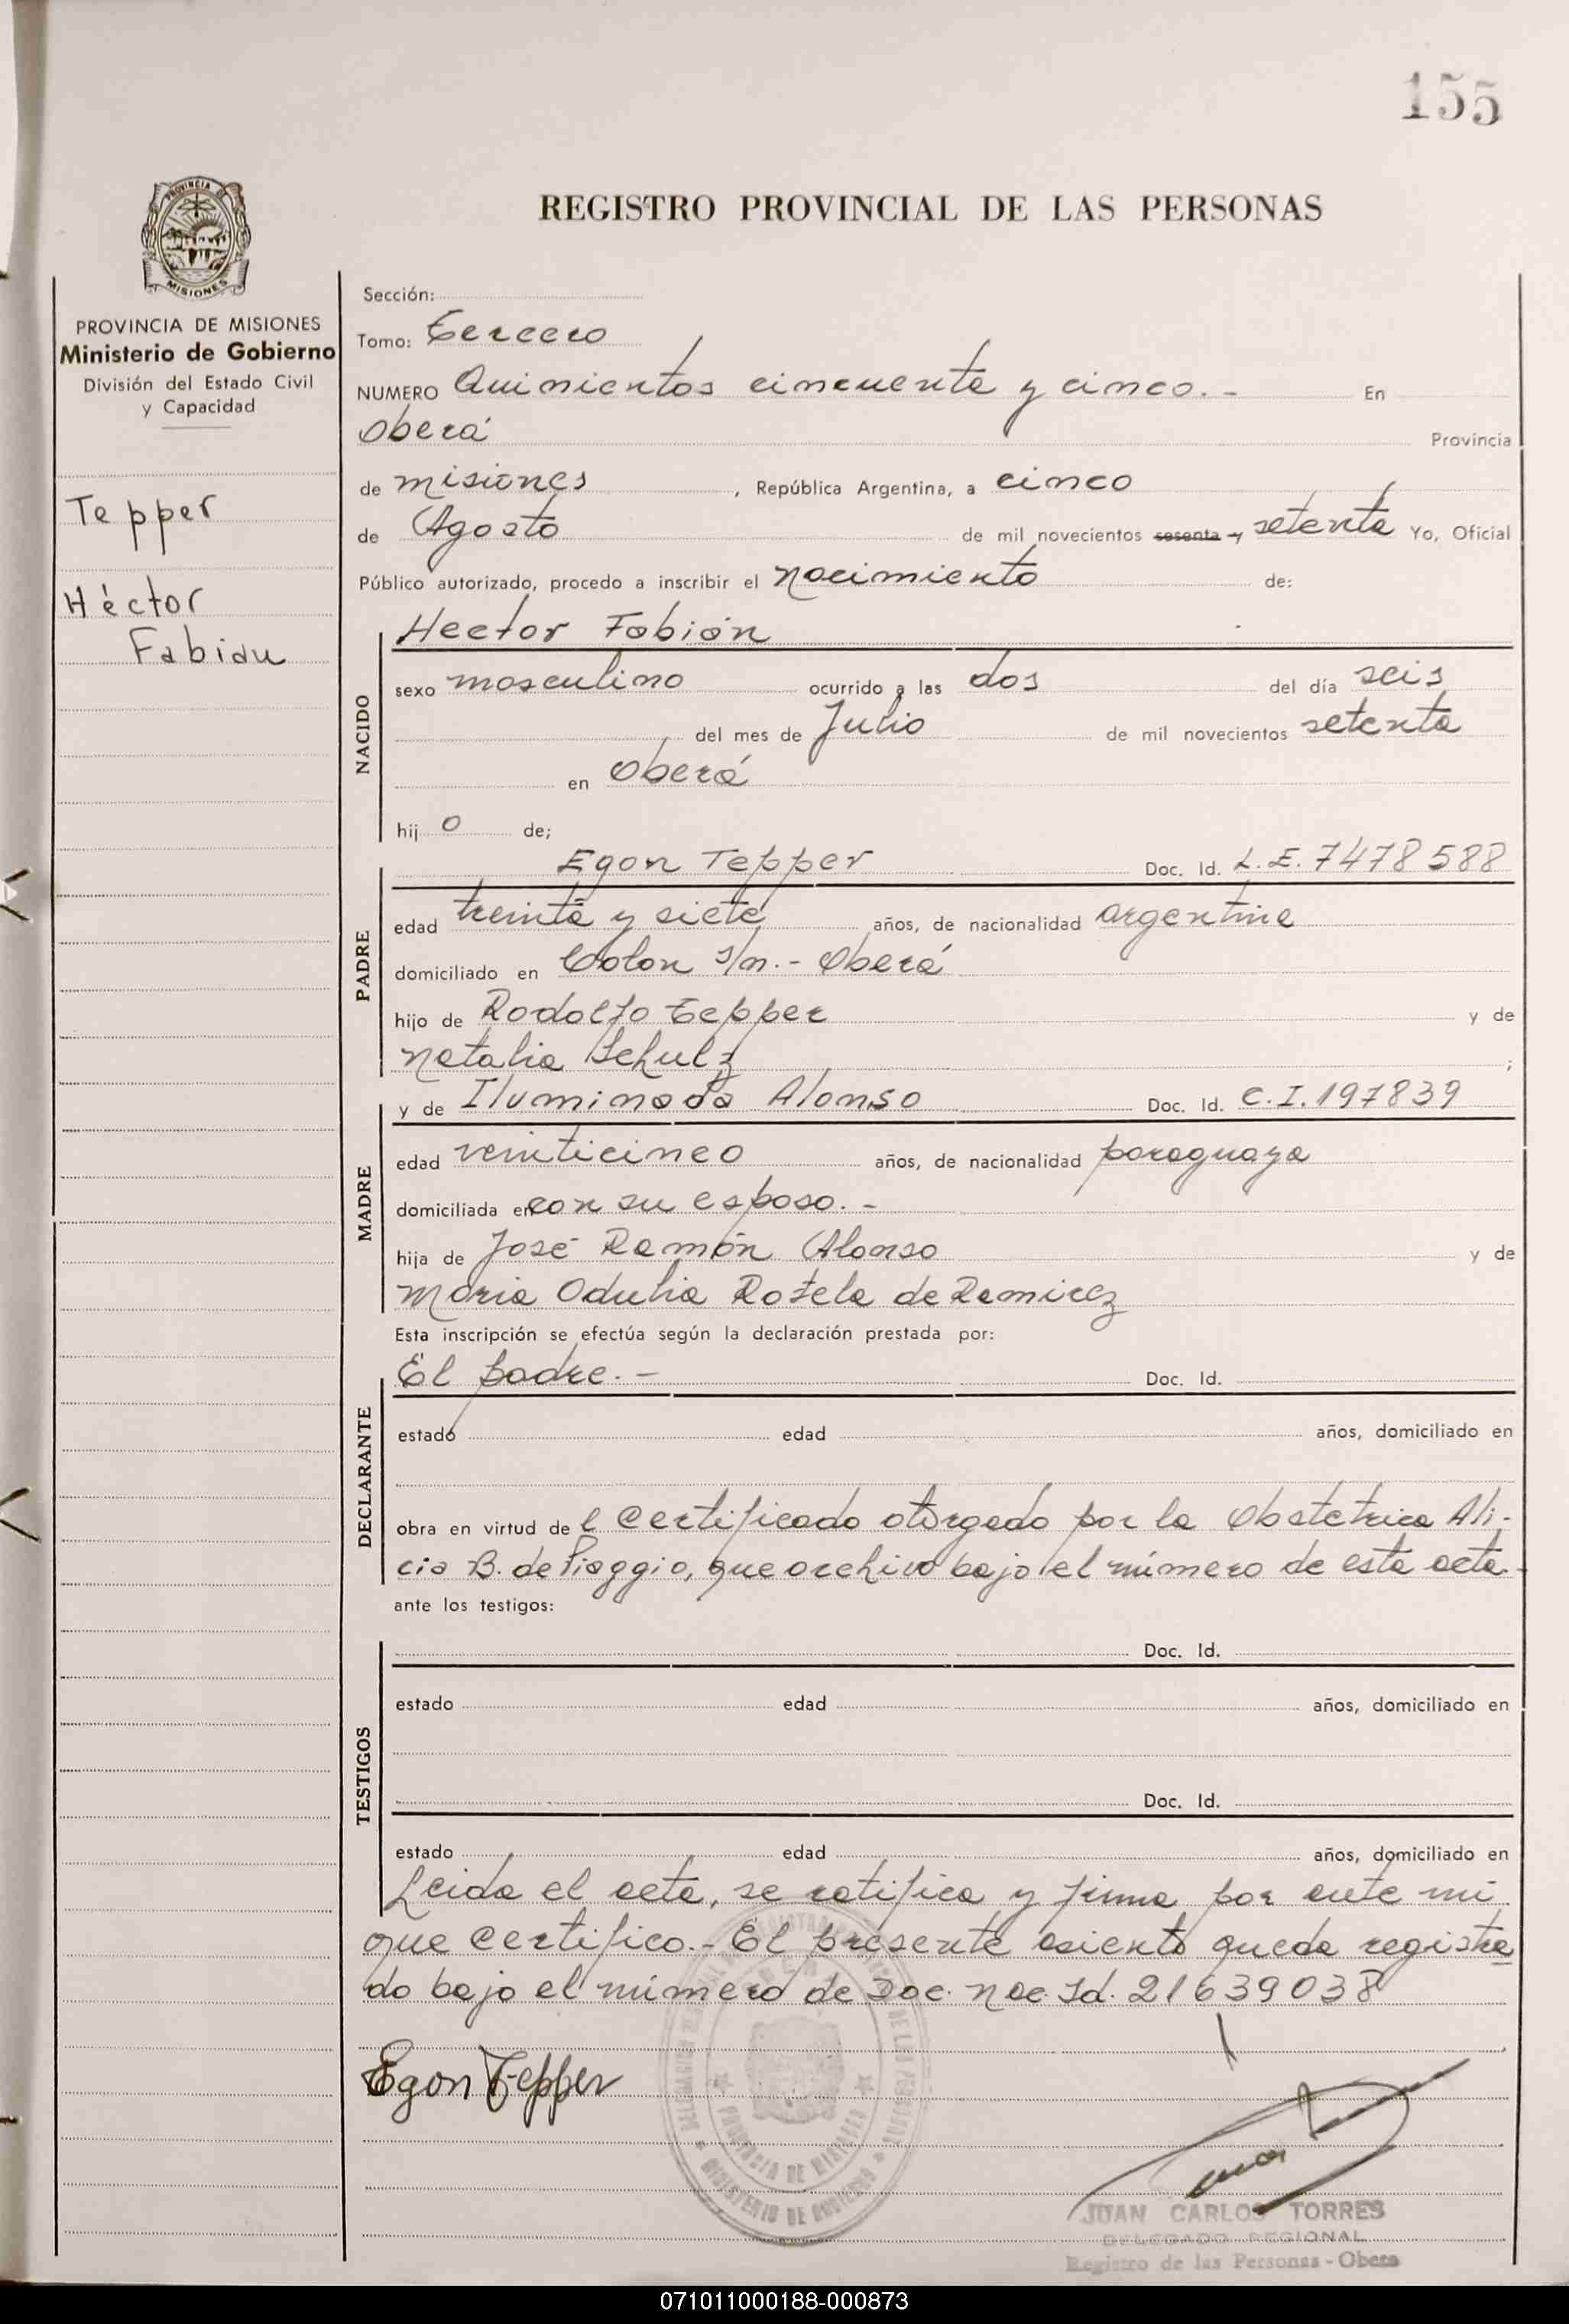 155
PROVINCIA DE
MISIONES
REGISTRO PROVINCIAL DE LAS PERSONAS
PROVINCIA DE MISIONES
Ministerio de Gobierno
División del Estado Civil
y Capacidad
Tepper
Héctor
Fabian
Sección:
Tomo: Tercero
NUMERO Quinientos cincuenta y cinco.- En
Oberá Provincia
de misiones, República Argentina, a cinco
de Agosto de mil novecientos sesenta y setenta Yo, Oficial
Público autorizado, procedo a inscribir el nacimiento de:
Hector Fabián
NACIDO
sexo masculino ocurrido a las dos del día seis
del mes de Julio de mil novecientos setenta
en Oberá
hij o de;
PADRE
Egon Tepper Doc. Id. L.E. 7478588
edad treinta y siete años, de nacionalidad argentina
domiciliado en Colon s/n.- Oberá
hijo de Rodolfo Tepper y de
Natalia Schulz ;
MADRE
y de Iluminada Alonso Doc. Id. C.I. 197839
edad veinticinco años, de nacionalidad paraguaya
domiciliada en con su esposo.-
hija de José Ramón Alonso y de
Maria Odulia Rotela de Ramirez
Esta inscripción se efectúa según la declaración prestada por:
DECLARANTE
El padre.- Doc. Id.
estado edad años, domiciliado en
obra en virtud de l certificado otorgado por la Obstetrica Ali-
cia B. de Piaggio, que archivo bajo el número de esta acta.
ante los testigos:
TESTIGOS
Doc. Id.
estado edad años, domiciliado en
Doc. Id.
estado edad años, domiciliado en
Leida el acta, se ratifica y firma por ante mi
que certifico.- El presente asiento queda registra
do bajo el número de Doc. Nac. Id. 21639038
Egon Tepper
PROVINCIA DE MISIONES
MINISTERIO DE GOBIERNO
JUAN CARLOS TORRES
DELEGADO REGIONAL
Registro de las Personas - Obera
071011000188-000873